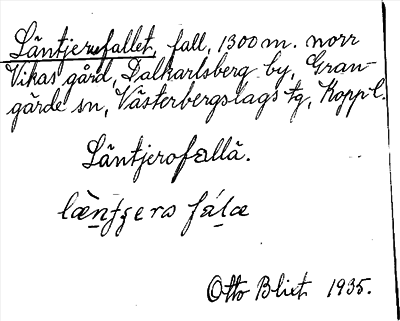 Läntjersfallet, fall, 1300 m. norr
Vikas gård, Dalkarlsberg by, Gran-
gärde sn, Västerbergslags tg, Koppl.
Läntjersfallä.
Otto Blixt 1935.